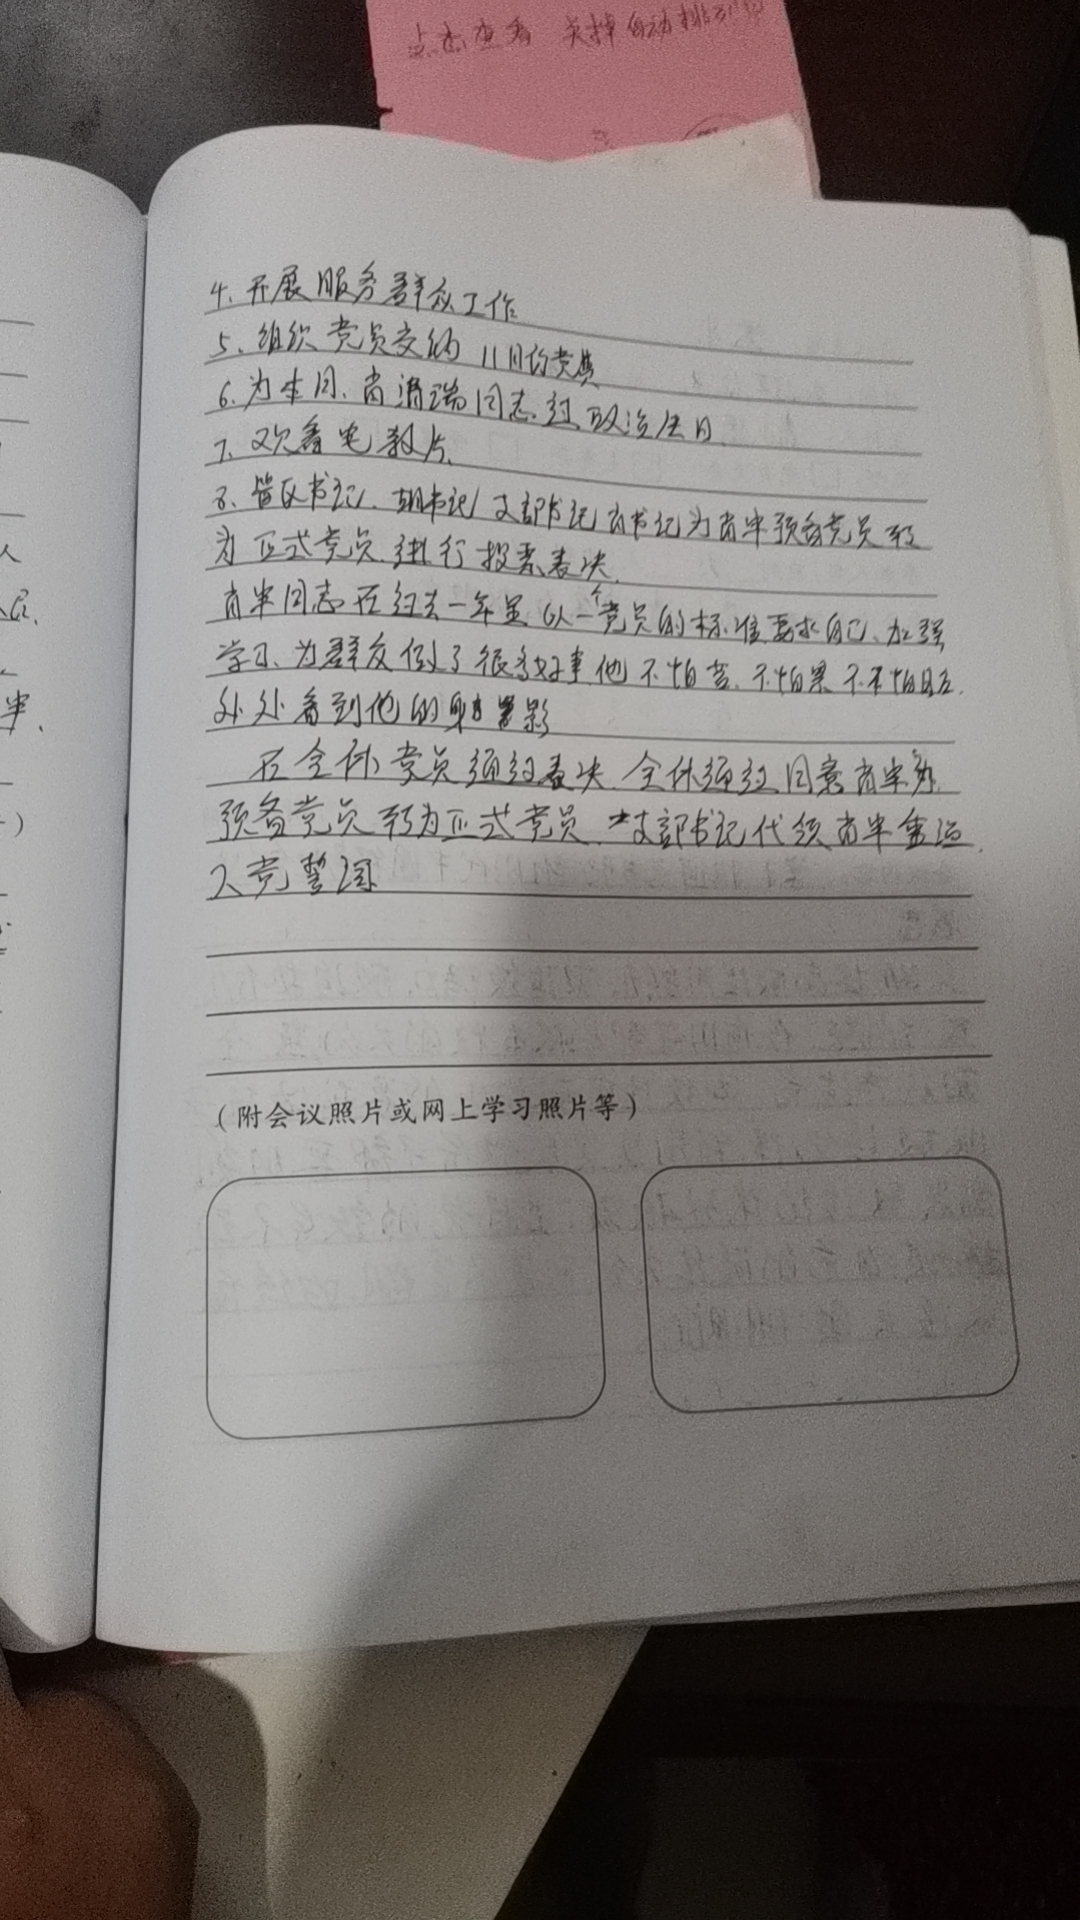 4、开展服务群众工作
5、组织党员交纳11月的党费
6、为本月、肖清瑞同志过政治生日
7、观看电教片、
8、管区书记、胡书记支部书记肖书记为肖半预备党员转
为正式党员、进行投票表决、
肖半同志在过去一年里以一个党员的标准要求自己、加强
学习、为群众做了很多好事他不怕苦、不怕累不怕脏、
处处看到他的身影
在全体党员通过表决、全体通过同意肖半
预备党员转为正式党员、支部书记代领肖半重温
入党誓词
（附会议照片或网上学习照片等）